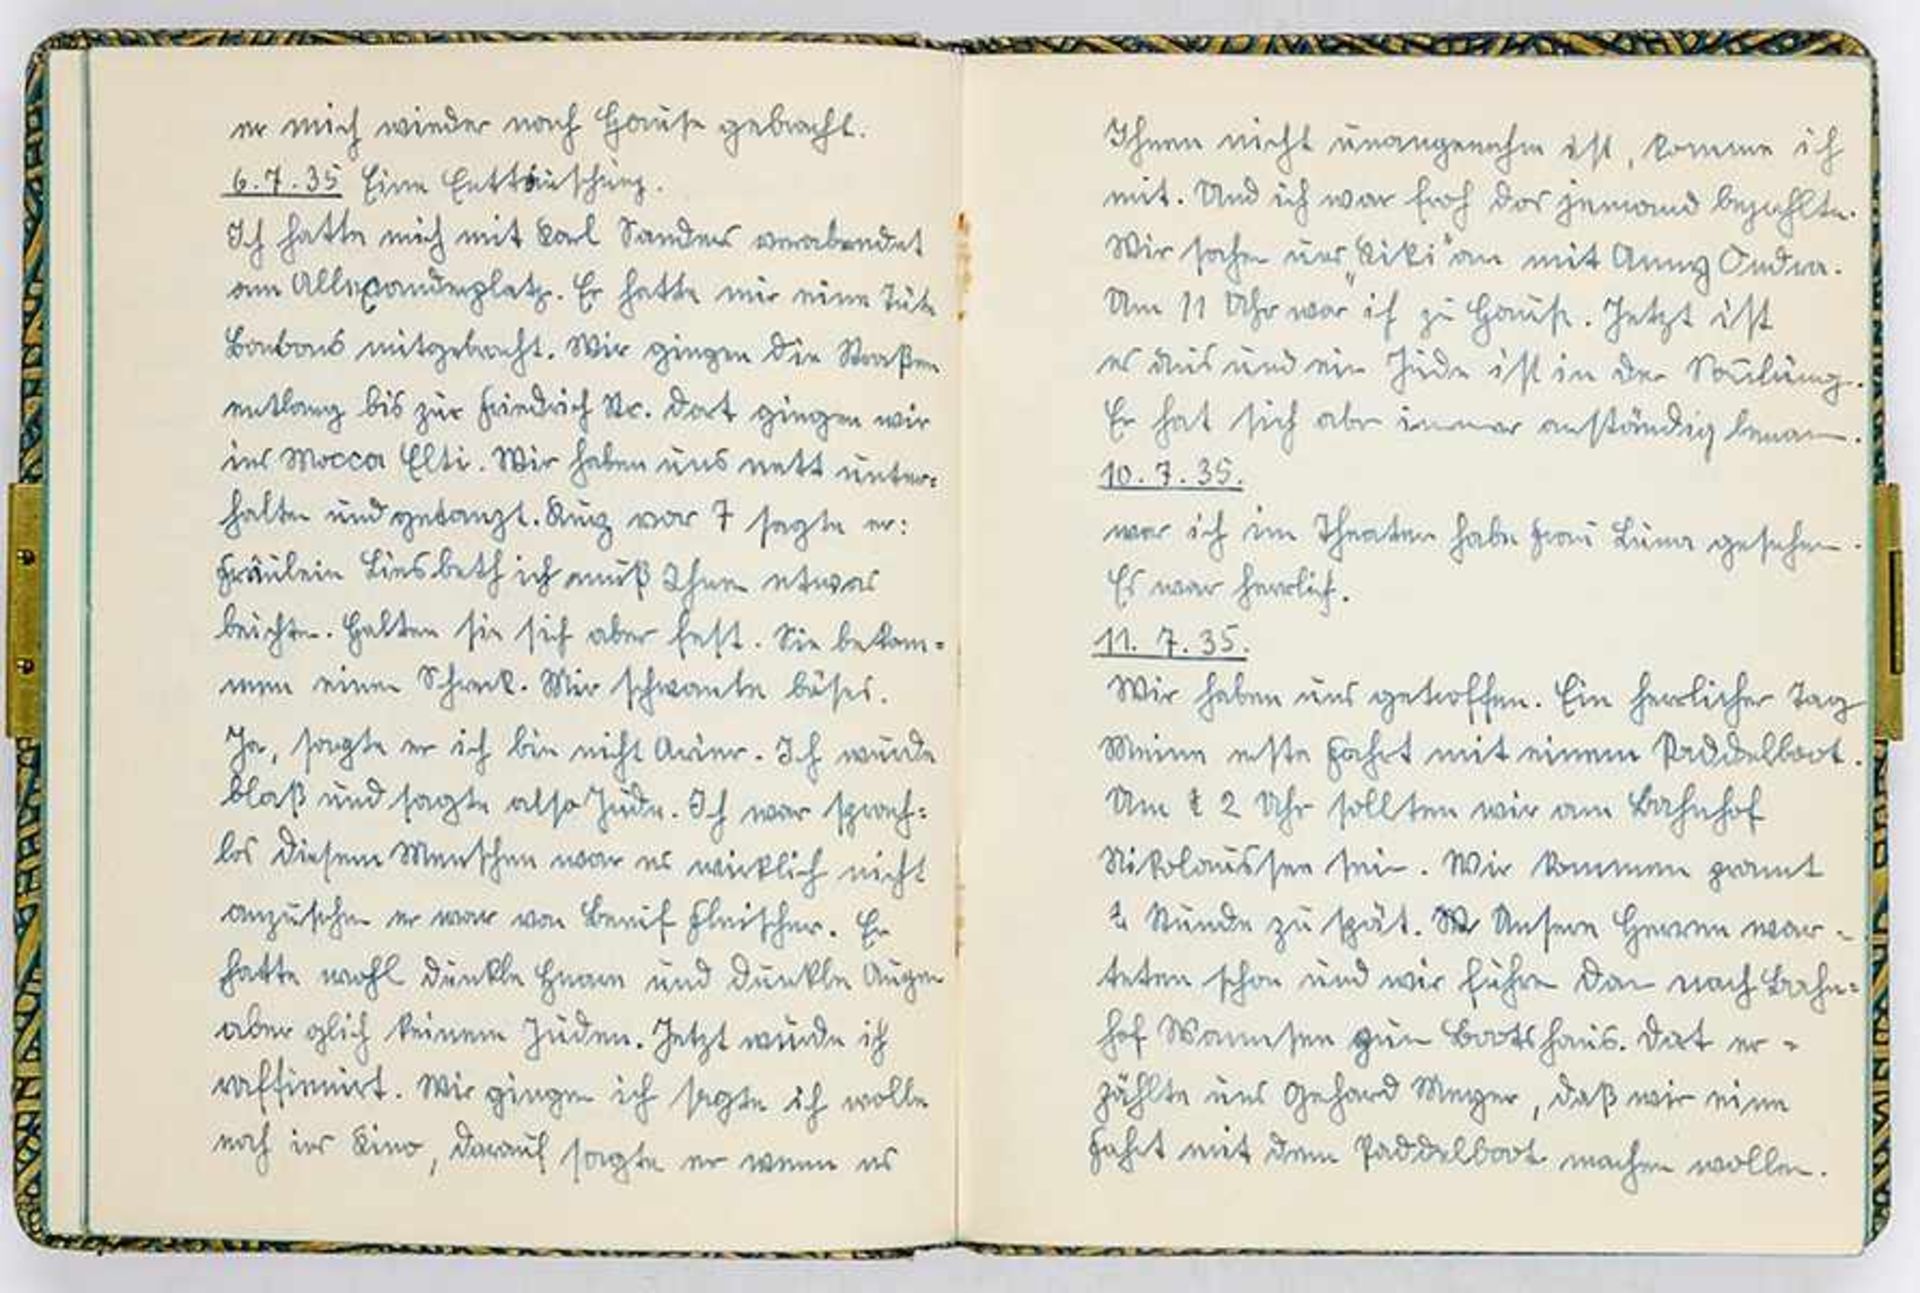 er mich wieder nach Hause gebracht.
6.7.35 Eine Enttäuschung.
Ich hatte mich mit Karl Sanders verabendet
am Allexanderplatz. Er hatte mir eine Tüte
Bonbons mitgebracht. Wir gingen die Straßen
entlang bis zur Friedrich Str. dort gingen wir
ins Mocca Efti. Wir haben uns nett unter=
halten und getanzt. Kurz vor 7 sagte er:
Fräulein Liesbeth ich muß Ihnen etwas
beichten. Halten sie sich aber fest. Sie bekom=
men einen Schreck. Mir schwante böses.
Ja, sagte er ich bin nicht Arier. Ich wurde
blaß und sagte also Jude. Ich war sprach=
los diesem Menschen war es wirklich nicht
anzusehen er war von Beruf Fleischer. Er
hatte wohl dunkle Haare und dunkle Augen
aber glich keinem Juden. Jetzt wurde ich
raffiniert. Wir gingen ich sagte ich wolle
noch ins Kino, darauf sagte er wenn es
Ihnen nicht unangenehm ist, komme ich
mit. Und ich war froh das jemand bezahlte.
Wir sahen uns „Kiki" an mit Anny Ondra.
Um 11 Uhr war ich zu Hause. Jetzt ist
es aus und ein Jude ist in der
Er hat sich aber immer anständig benom.
10.7.35.
war ich im Theater habe Frau Luna gesehen.
Es war herrlich.
11.7.35.
Wir haben uns getroffen. Ein herrlicher Tag
Meine erste Fahrt mit einem Paddelboot.
Um 2 Uhr sollten wir am Bahnhof
Nikolaussee sein. Wir kommen promt
Stunde zu spät. Unsere Herren war=
teten schon und wir fuhren dan nach Bahn=
hof Wannsee zum Bootshaus. Dort er=
zählte uns Gehard Meyer, daß wir eine
Fahrt mit dem Paddelboot machen wollen.